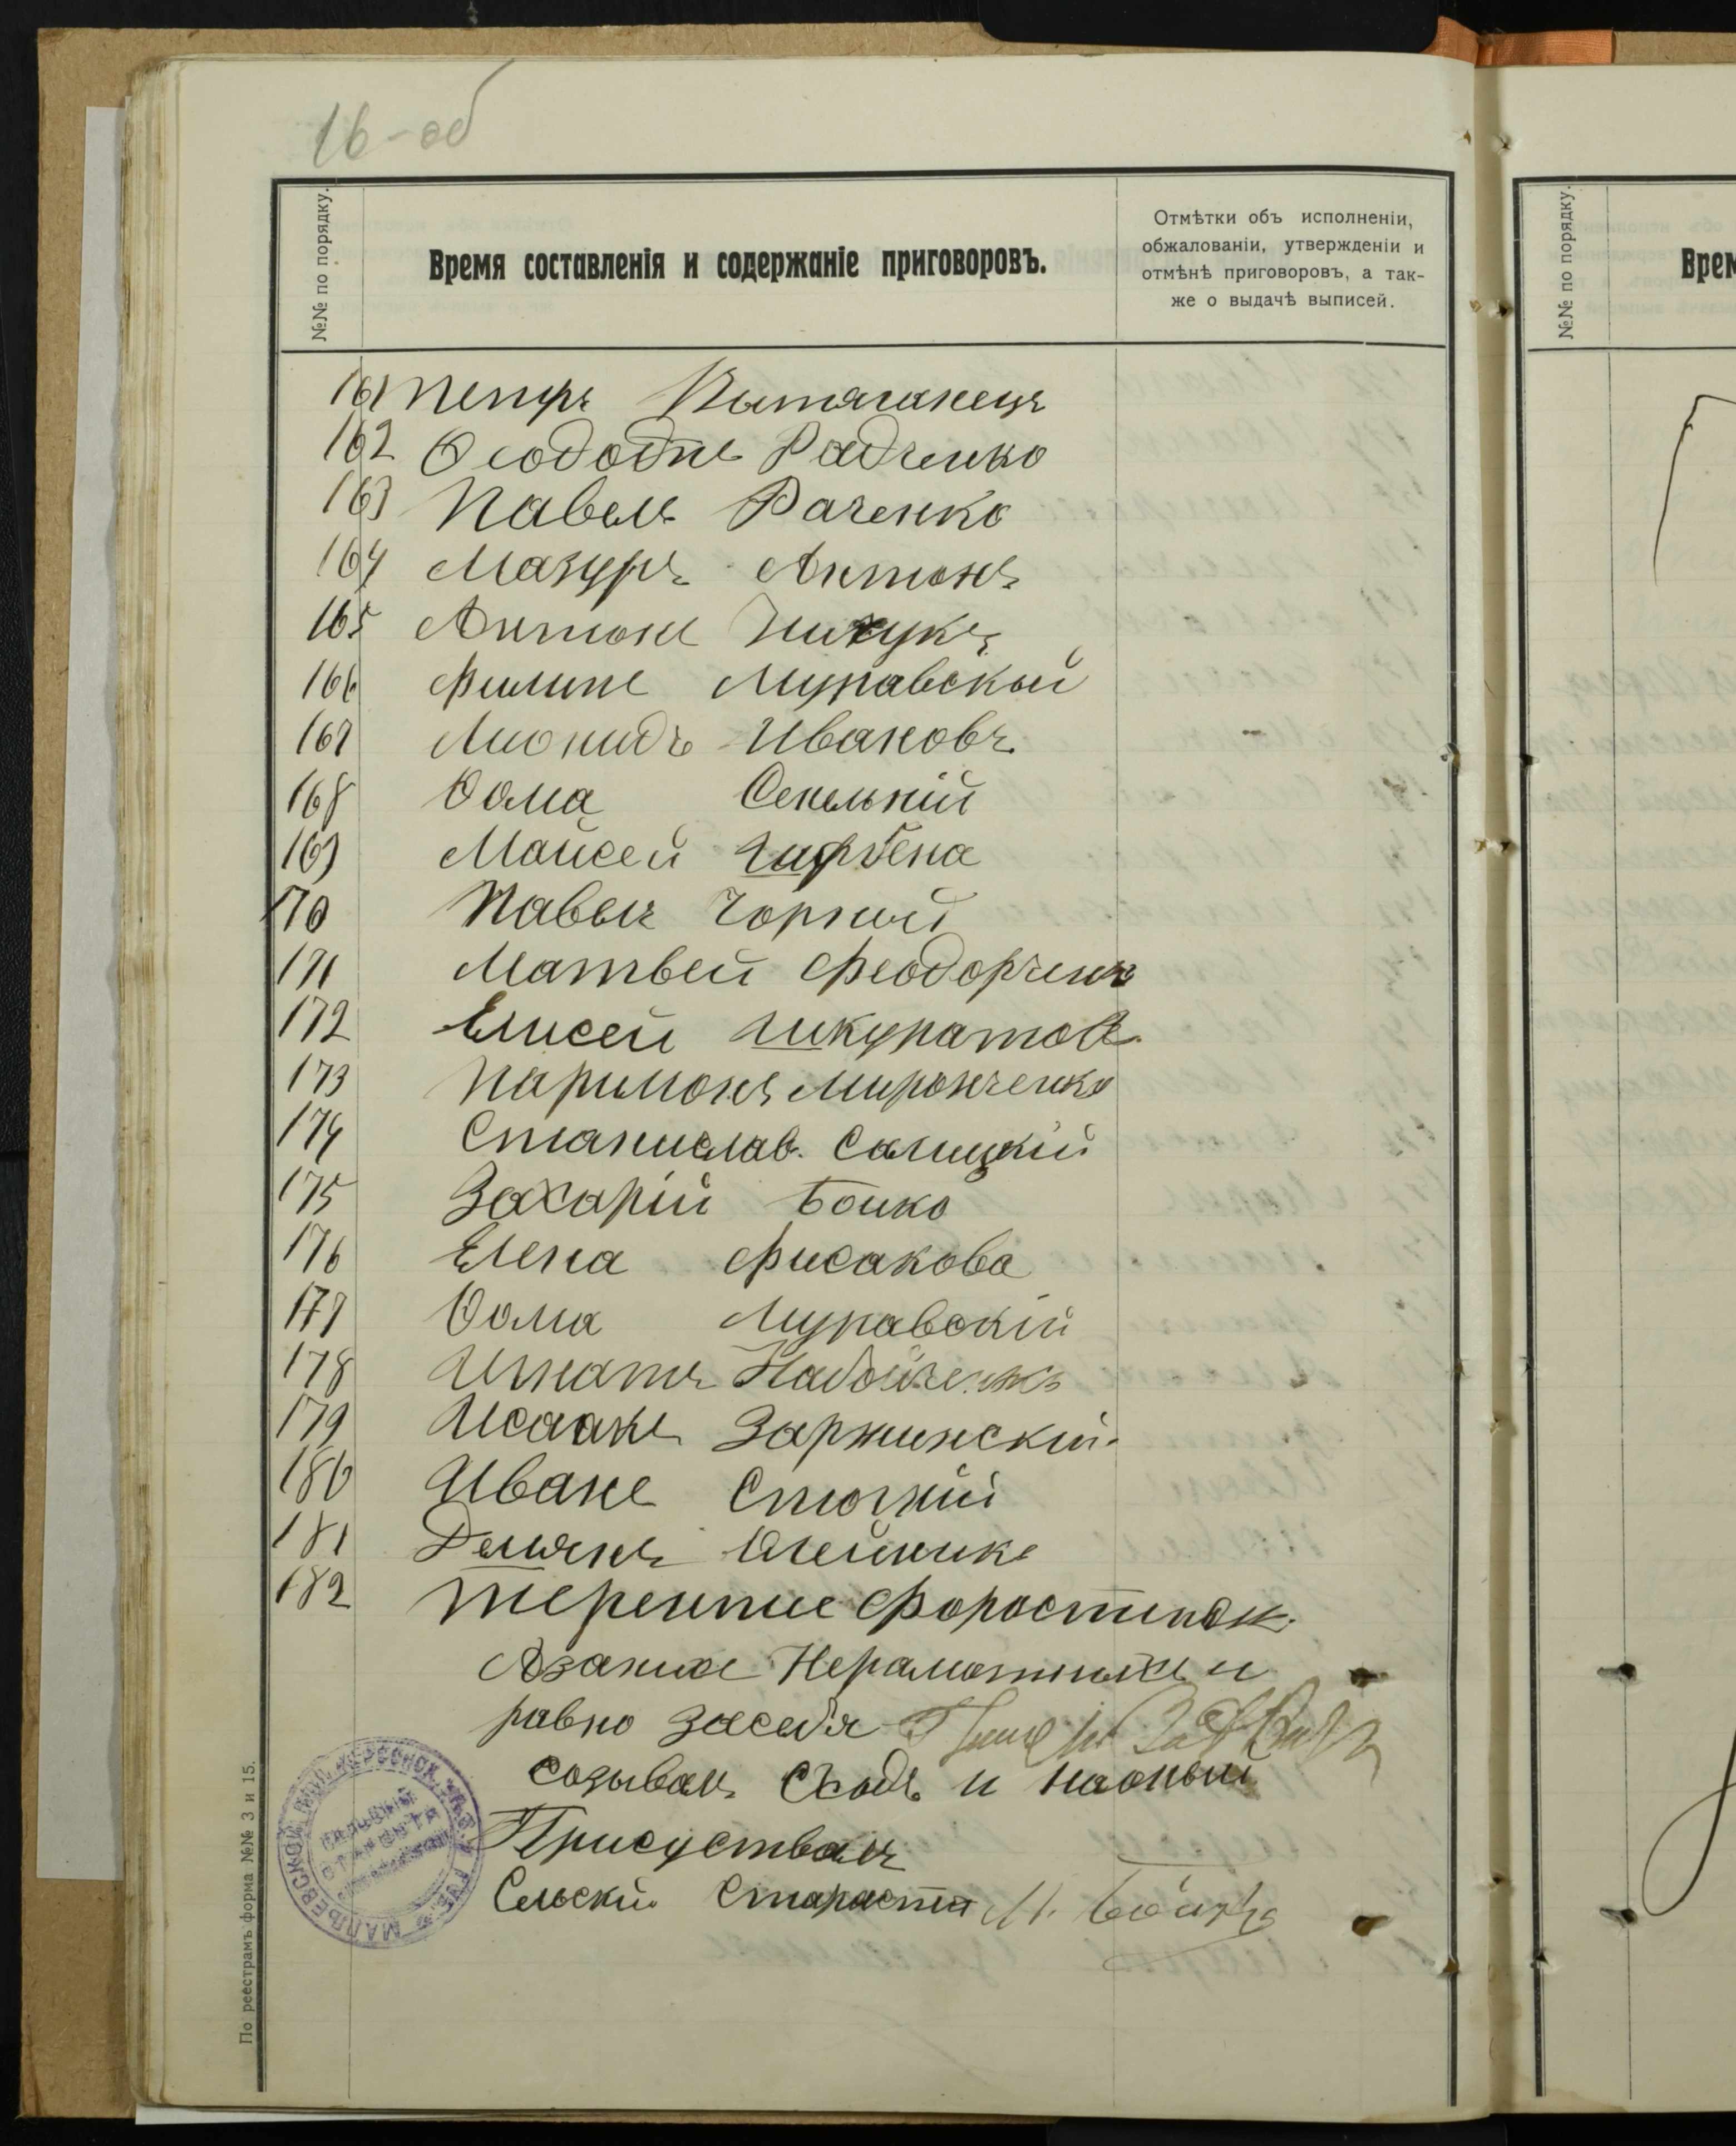 16-об
№№ по порядку.
Время составленія и содержаніе приговоровъ.
Отмѣтки объ исполненіи,
обжалованіи, утвержденіи и
отмѣнѣ приговоровъ, а так-
же о выдачѣ выписей.
161 Петръ Вытяганецъ
162 Ѳеодотъ Радченко
163 Павелъ Раченко
164 Мазуръ Антонъ
165 Антонъ
166 Филипъ Муравскый
167 Лионидъ Ивановъ
168 Ѳома
169 Моисей Щербена
170 Павелъ Чорный
171 Матвей Феодорченко
172 Елисей Шкуратов
173 Паримонъ Миронченко
174 Станислав. Салицкій
175 Захарій Бойко
176 Елена Фисакова
177 Ѳома Муравскій
178 Игнатъ Набойченко
179 Исаакъ Заржинскій
180 Иванъ Стогній
181 Демянъ Олейникъ
182 Терентие Форостиняк.
Азаних Нераматных и
равно засебя
созывал Сходъ и наоный
Присуствалъ
Сельскій Стараста И. Бойко
По реестрамъ форма №№ 3 и 15.
№№ по порядку.
Врем